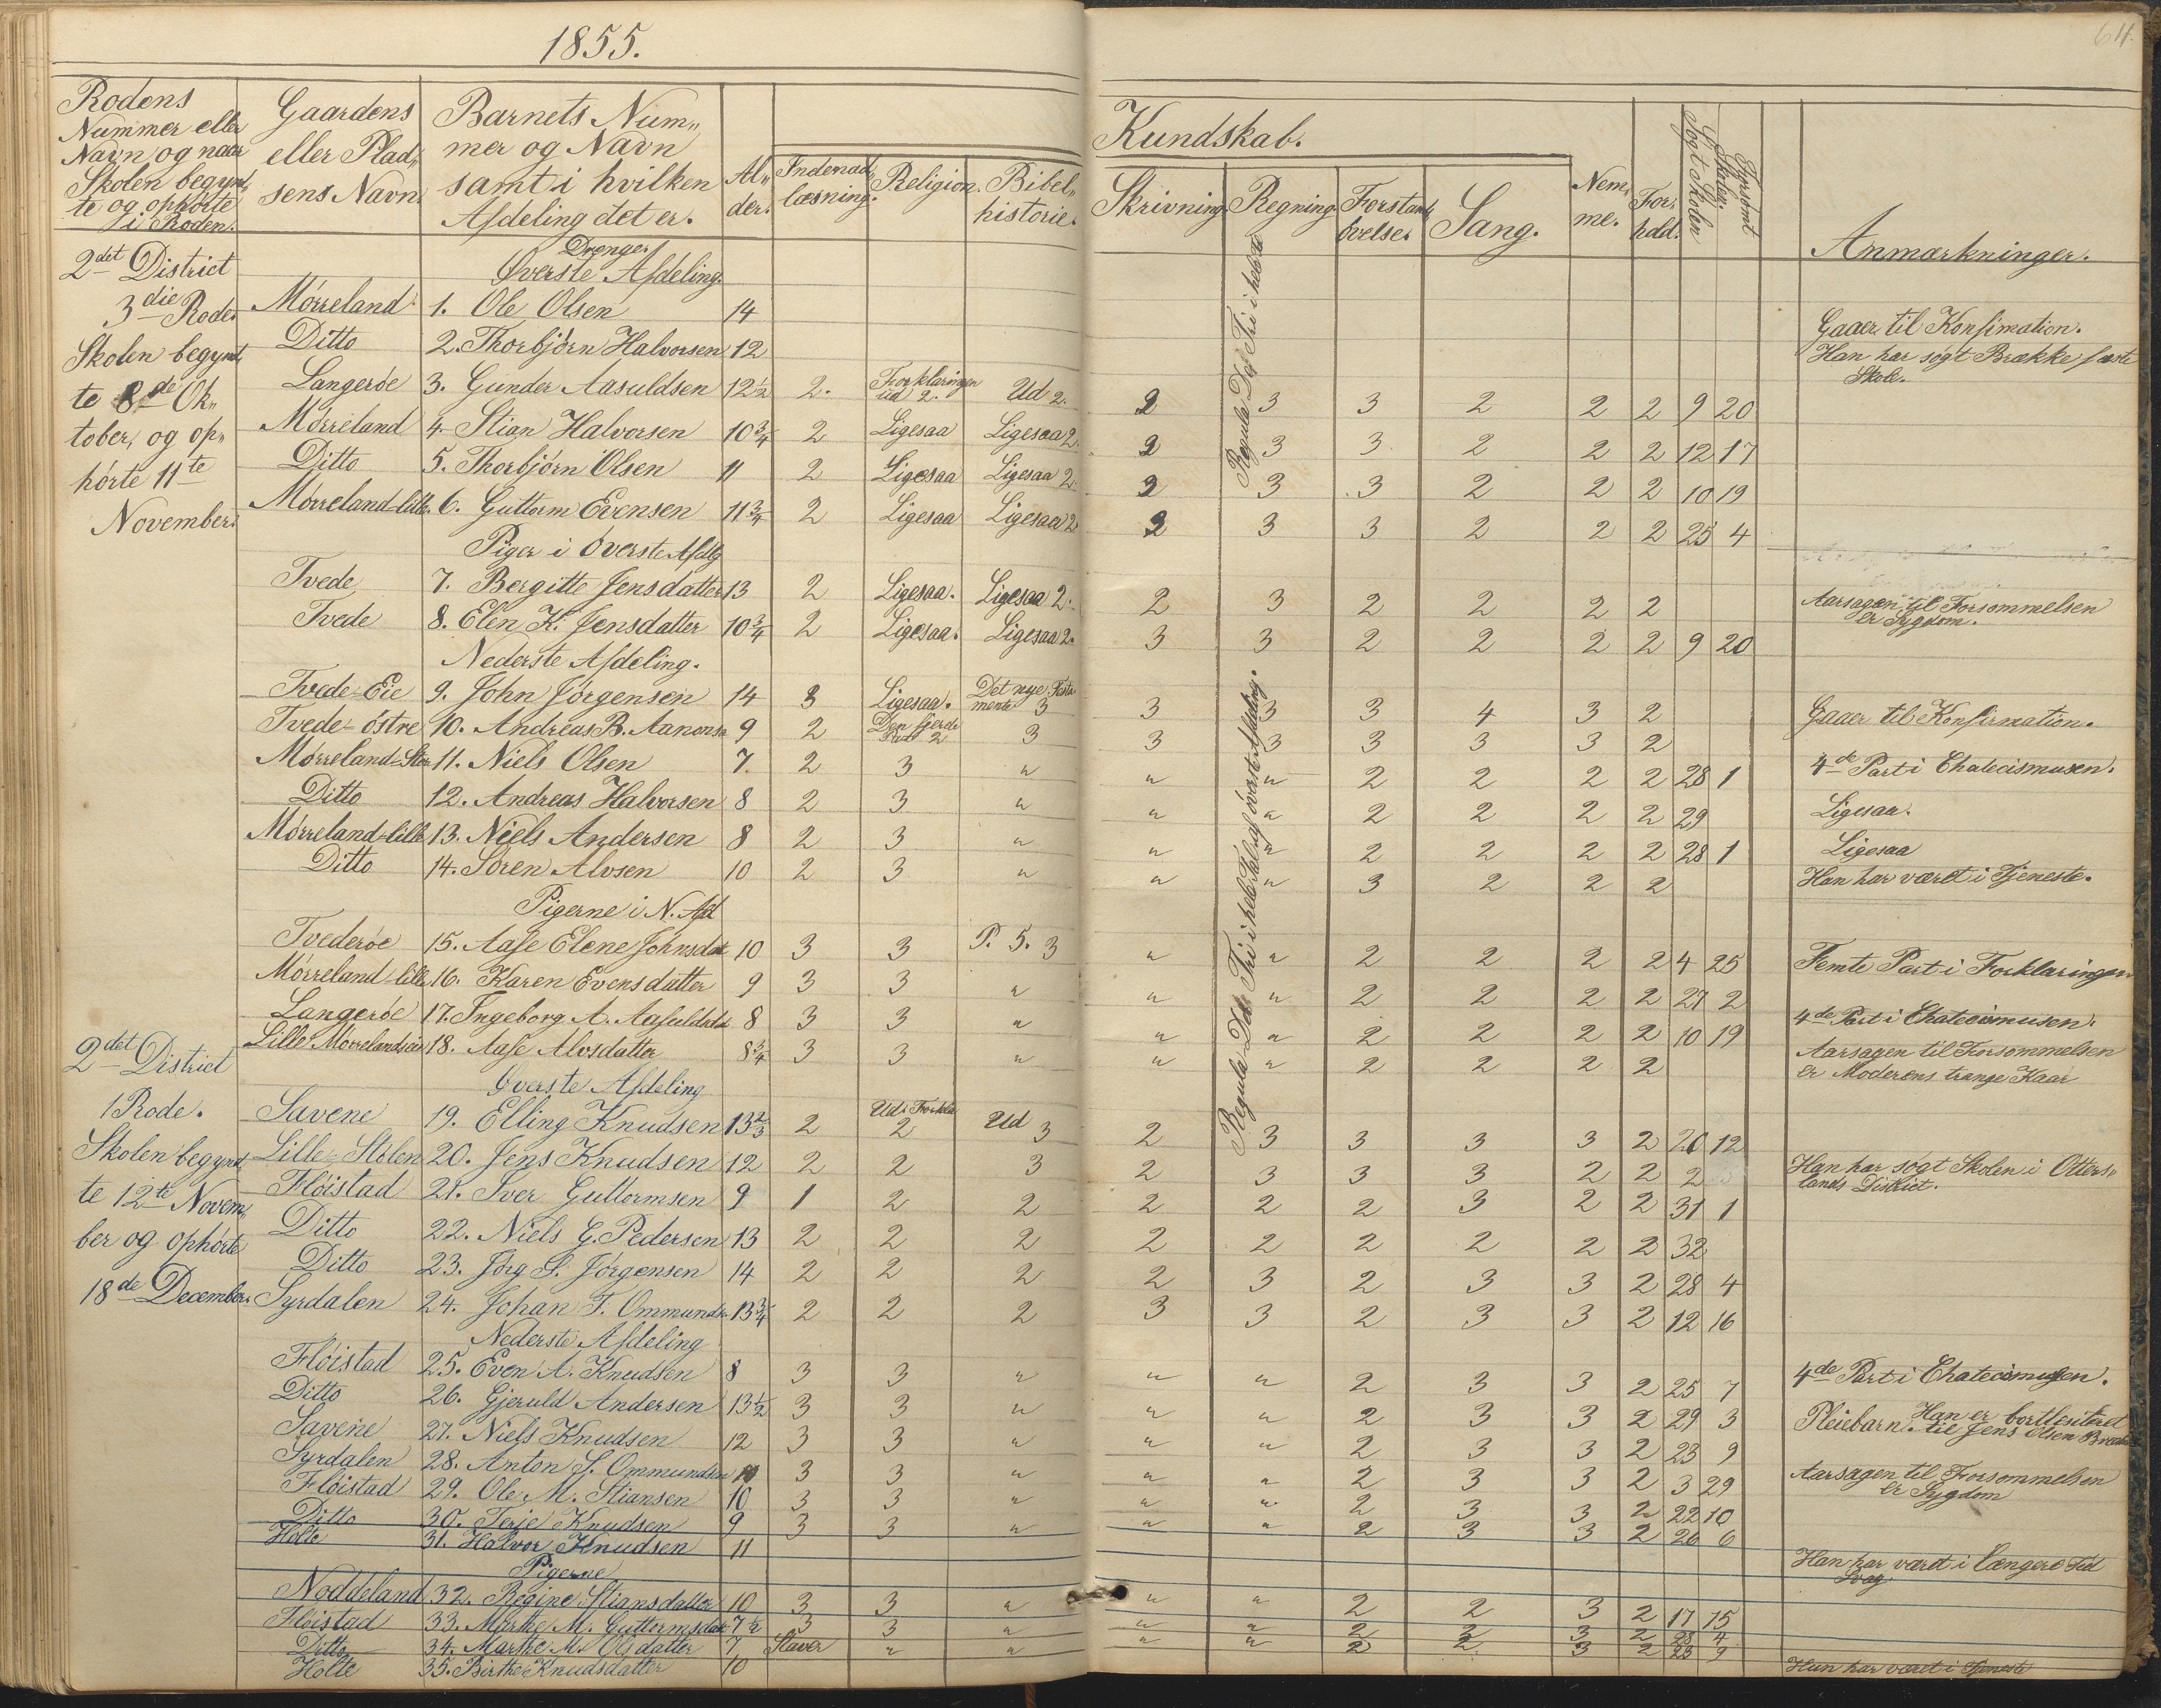 1855.
64.
Rodens Nummer eller Navn og naar Skolen begynte og ophörte i Roden.
Gaardens eller Pladsens Navn.
Barnets Nummer og Navn samt i hvilken Afdeling det er.
Alder.
Indenadlæsning.
Religion.
Bibelhistorie.
Kundskab.
Skrivning.
Regning.
Forstandsövelser
Sang.
Nemme.
Forhold.
Sögt Skolen
Forsömt
Anmærkninger.
2det District
Drenge
Øverste Afdeling.
3die Rode. Mörreland 1. Ole Olsen 14 Gaaer til Konfimation.
Skolen begynte 8de Oktober, og ophörte 11te November.
Ditto 2. Thorbjörn Halvorsen 12 Han har sögt Brække faste Skole.
Langeröe 3. Gunder Aasuldsen 12½ 2. Forklaringen ud 2. Ud 2. 2 3 3 2 2 2 9 20
Mörreland 4. Stian Halvorsen 10¾ 2 Ligesaa Ligesaa 2. 2 3 3 2 2 2 12 17
Ditto 5. Thorbjörn Olsen 11 2 Ligesaa Ligesaa 2. 2 3 3 2 2 2 10 19
Mörreland-lille. 6. Guttorm Evensen 11¾ 2 Ligesaa Ligesaa 2. 2 3 3 2 2 2 25 4
Piger i Överste Afdlg
Tvede 7. Bergitte Jensdatter 13 2 Ligesaa. Ligesaa 2. 2 3 2 2 2 2 Aarsagen til Forsömmelsen er Sygdom.
Tvede 8. Elen K. Jensdatter 10¾ 2 Ligesaa. Ligesaa 2. 3 3 2 2 2 2 9 20
Nederste Afdeling.
Tvede-Eie 9. John Jörgensen 14 3 Ligesaa. Det nye Testamente 3 3 3 3 4 3 2 Gaaer til Konfirmation.
Tvede-östre 10. Andreas B. Aanonsn 9 2 Den fjerde Part 2 3 3 3 3 3 3 2
Mörreland-Store 11. Niels Olsen 7. 2 3 " " " 2 2 2 2 28 1 4de Part i Chatecismusen.
Ditto 12. Andreas Halvorsen 8 2 3 " " " 2 2 2 2 29 Ligesaa.
Mörreland-lille 13. Niels Andersen 8 2 3 " " " 2 2 2 2 28 1 Ligesaa
Ditto 14. Sören Alvsen 10 2 3 " " " 3 2 2 2 Han har været i Tjeneste.
Pigerne i N. Afd
Tvederöe 15. Aase Elene Johnsdat 10 3 3 P. 5. 3 " " 2 2 2 2 4 25 Femte Part i Forklaringen
Mörreland-lille 16. Karen Evensdatter 9 3 3 " " " 2 2 2 2 27 2
Langeröe 17. Ingeborg A. Aasuldsdat 8 3 3 " " " 2 2 2 2 10 19 4de Part i Chatecismusen.
Lille Mörrelandseie 18. Aase Alvsdatter 8¾ 3 3 " " " 2 2 2 2 Aarsagen til Forsömmelsen er Moderens trange Kaar
2det District
Øverste Afdeling
1 Rode.
Skolen begynte 12te November og ophörte 18de December.
Savene 19. Elling Knudsen 13⅔ 2 Ud i Forkla 2 Ud 3 2 3 3 3 3 2 20 12
Lille-Stölen 20. Jens Knudsen 12 2 2 3 2 3 3 3 2 2 2 Han har sögt Skolen i Otterslands District.
Flöistad 21. Iver Guttormsen 9 1 2 2 2 2 2 3 2 2 31 1
Ditto 22. Niels G. Pedersen 13 2 2 2 2 2 2 2 2 2 32
Ditto 23. Jörg S. Jörgensen 14 2 2 2 2 3 2 3 3 2 28 4
Syrdalen 24. Johan T. Ommundsn 13¾ 2 2 2 3 3 2 3 3 2 12 16
Nederste Afdeling
Flöistad 25. Even A. Knudsen 8 3 3 " " " 2 3 3 2 25 7 4de Part i Chatecismusen.
Ditto 26. Gjeruld Andersen 13½ 3 3 " " " 2 3 3 2 29 3 Pleiebarn. Han er bortleiteret til Jens Olsen
Savene 27. Niels Knudsen 12 3 3 " " " 2 3 3 2 23 9
Syrdalen 28. Anton S. Ommundsen 10 3 3 " " " 2 3 3 2 3 29 Aarsagen til Forsömmelsen er Sygdom
Flöistad 29. Ole M. Stiansen 10 3 3 " " " 2 3 3 2 22 10
Ditto 30. Terje Knudsen 9 3 3 " " " 2 3 3 2 26 6
Holte 31. Halvor Knudsen 11 Han har været i længere Tid Svag
Pigerne
Noddeland 32. Regine Stiansdatter 10 3 3 " " " 2 2 3 2 17 15
Flöistad 33. Marthe M. Guttormsdat 7½ 3 3 " " " 2 2 3 2 28 4
Ditto 34. Marthe M. Olsdatter 7 Staver " " " " 2 2 3 2 23 9
Holte 35. Birthe Knudsdatter 10 Hun har været i Tjeneste
Regula De Tri i hele
Regula De Tri i hele Tal af överste Afdeling.